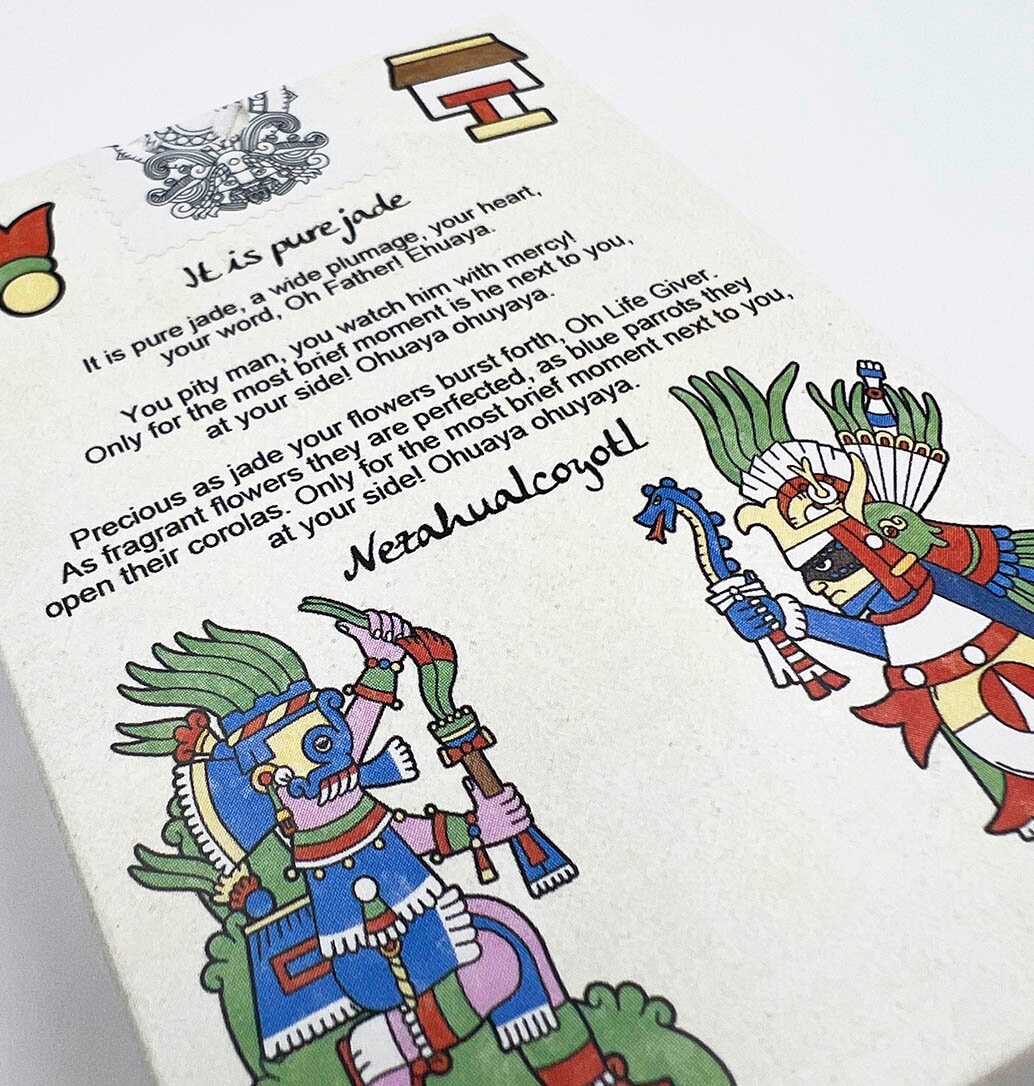 It is pure jade
It is pure jade, a wide plumage, your heart,
your word, Oh Father! Ehuaya.
You pity man, you watch him with mercy!
Only for the most brief moment is he next to you,
at your side! Ohuaya ohuyaya.
Precious as jade your flowers burst forth, Oh Life Giver.
As fragrant flowers they are perfected, as blue parrots they
open their corolas. Only for the most brief moment next to you,
at your side! Ohuaya ohuyaya.
Nezahualcoyotl